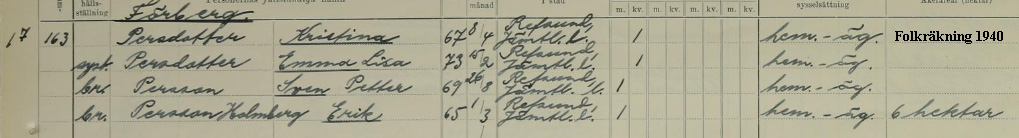 hålls- månad sysselsättning
ställning m. kv. m. kv. m. kv. m. kv.
Förberg.
17 163 Persdotter Kristina 67 8/4 Refsund, Jämtl. l. 1 hem.-äg. Folkräkning 1940
syst. Persdotter Emma Lisa 73 15/2 Refsund, Jämtl. l. 1 hem.-äg.
br. Persson Sven Petter 69 26/8 Refsund, Jämtl. l. 1 hem.-äg.
br. Persson Holmberg Erik 65 1/3 Refsund, Jämtl. l. 1 hem.-äg. 6 hektar